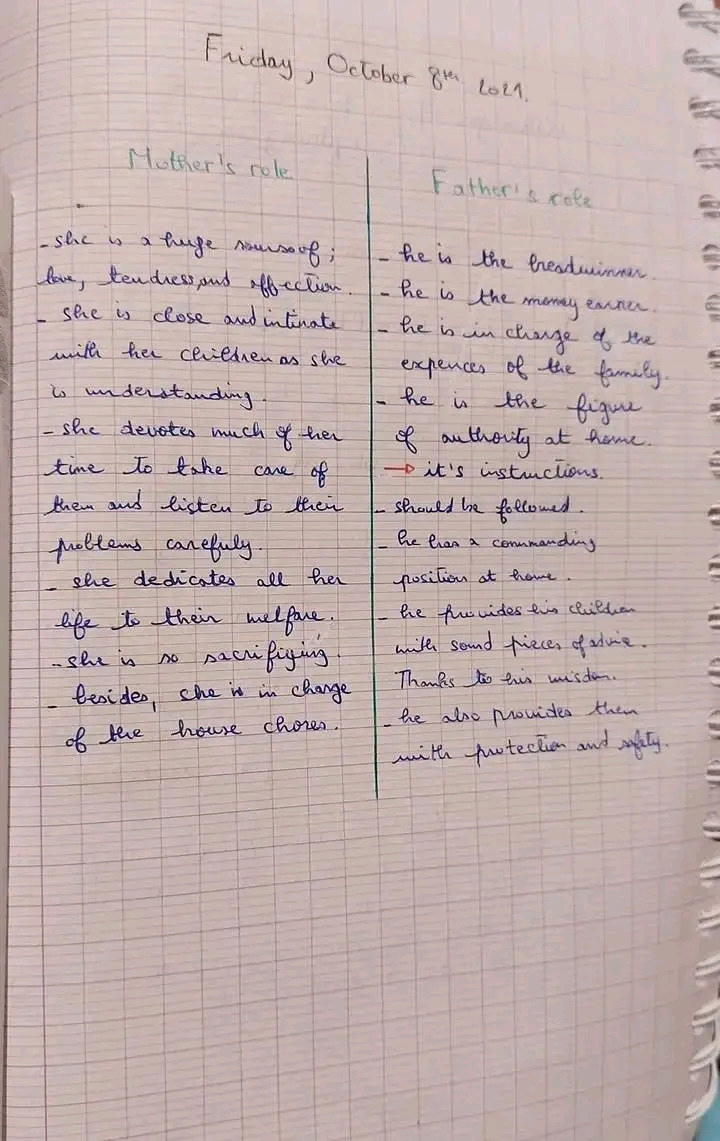 Friday, October 8th 2021.
Mother's role
- she is a huge sourso of;
love, tendress, and affection.
- she is close and intinate
with her children as she
is understanding.
- she devotes much of her
time to take care of
them and listen to their
problems carefuly.
- she dedicates all her
life to their welfare.
- she is so sacrifiying.
- besides, she is in change
of the house chores.
Father's role
- he is the breadwinner.
- he is the money earner.
- he is in charge of the
expences of the family.
- he is the figure
of authority at home.
→ it's instructions.
- should be followed.
- he has a commanding
position at home.
- he provides his children
with sound pieces of advice.
Thanks to his wisdom.
- he also provides them
with protection and safety.